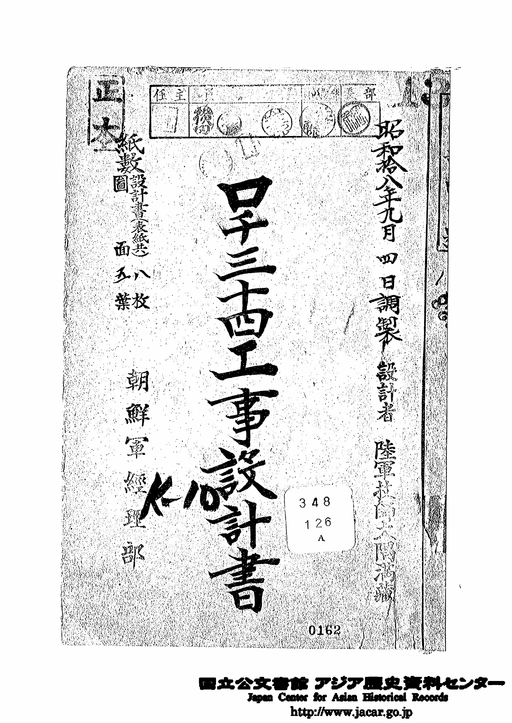 正本
主任
部
昭和拾八年九月四日調製
設計者 陸軍技師大隅満蔵
ロ千三十四工事設計書
紙数 設計書(表紙共)八枚
圖面五葉
朝鮮軍經理部
K-10
348
126
A
0162
国立公文書館 アジア歴史資料センター
Japan Center for Asian Historical Records
http://www.jacar.go.jp